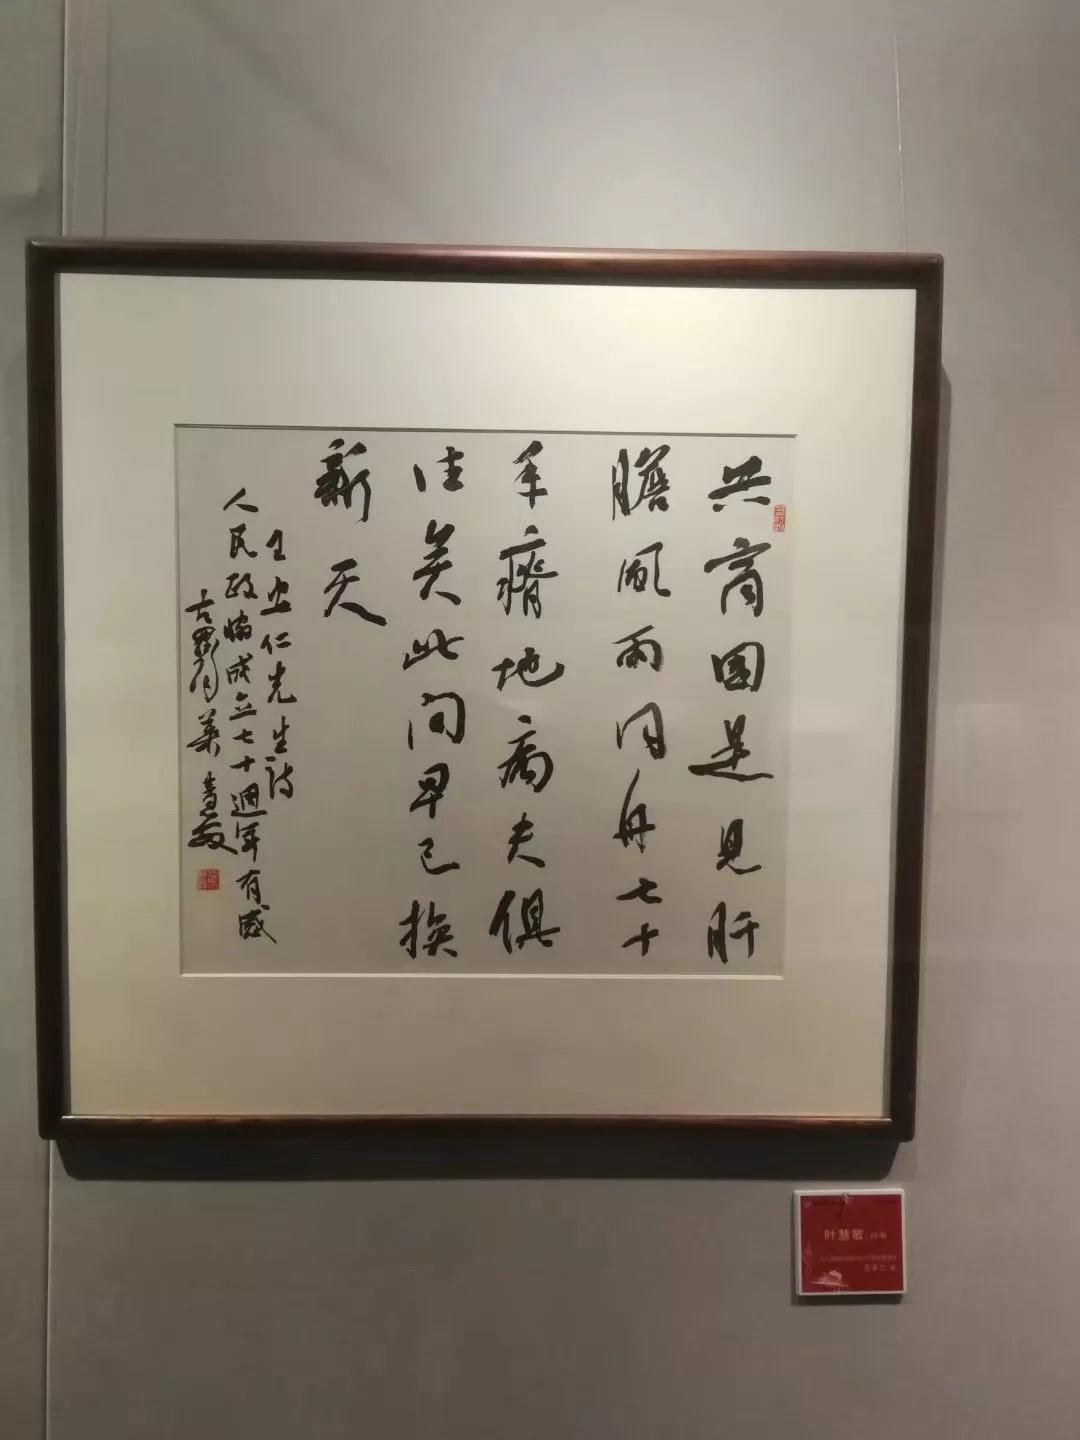 共商国是见肝
膽风雨同舟七十
年瘠地病夫俱
往矣此间早已换
新天
王 仁先生詩
人民政協成立七十週年有感
古 月葉慧敏
叶慧敏